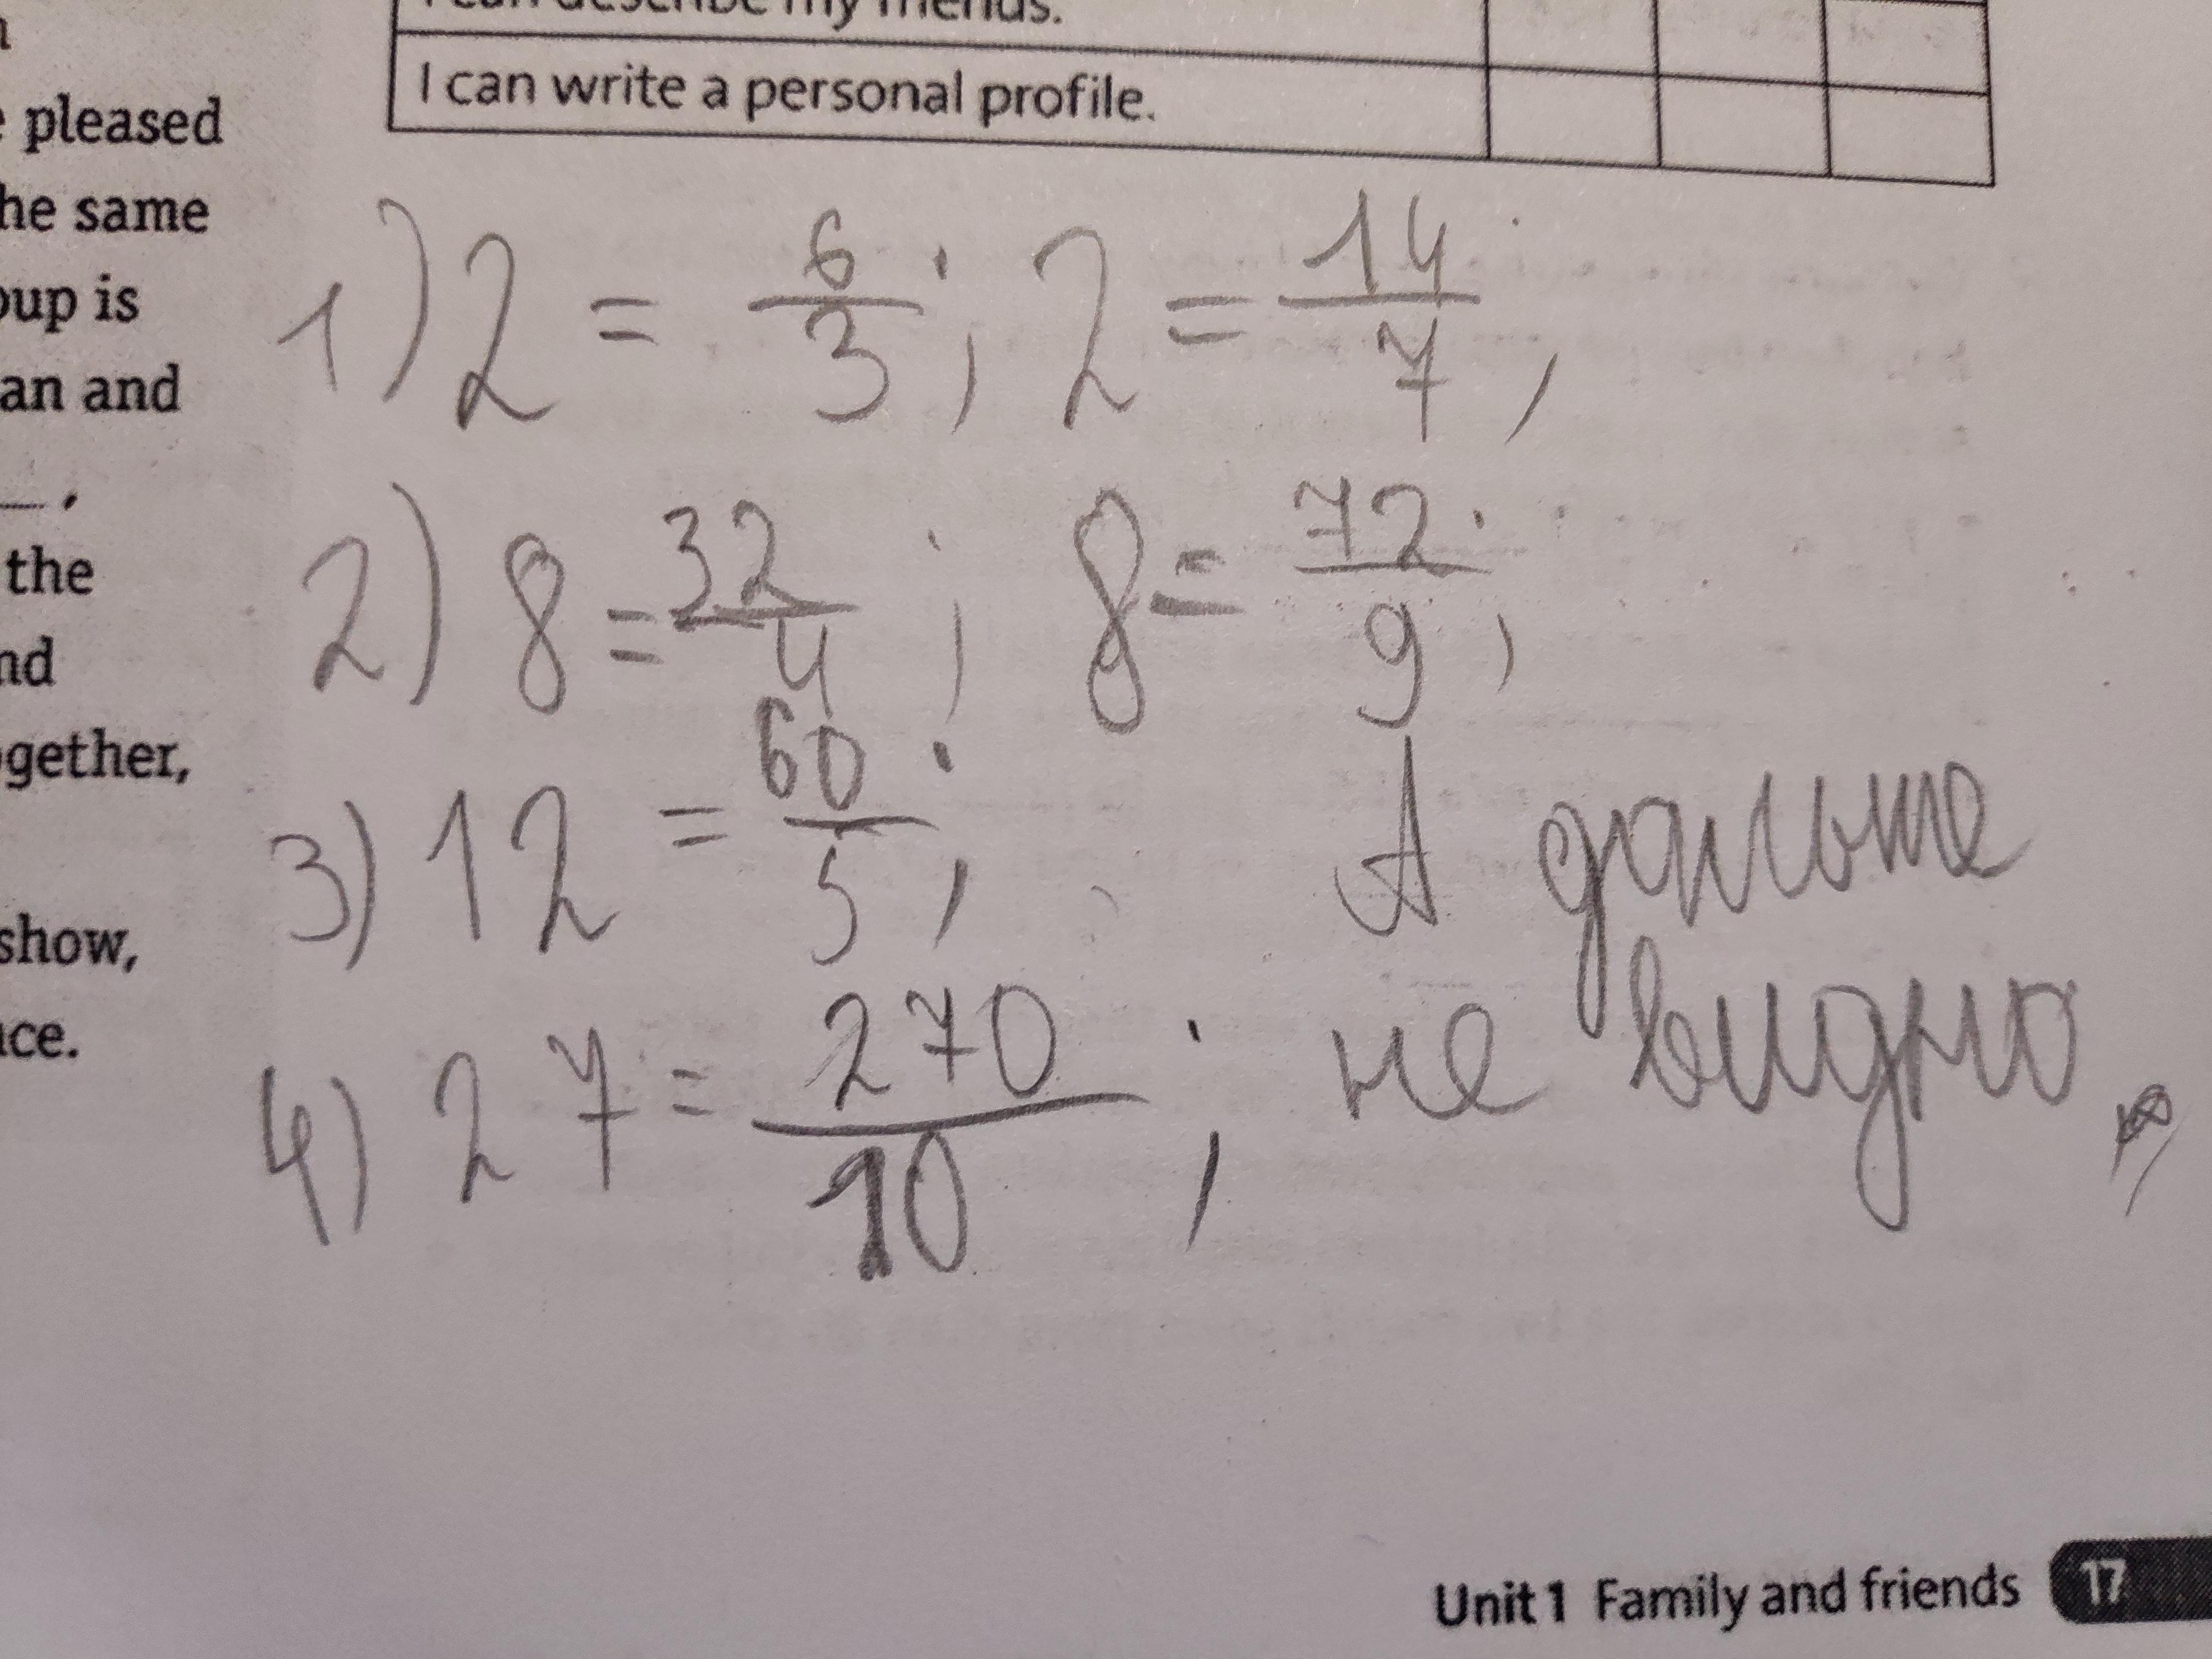 I can describe my friends.
I can write a personal profile.
pleased
he same
oup is
an and
the
nd
ogether,
show,
ce.
1) 2 = 6/3; 2 = 14/7;
2) 8 = 32/4; 8 = 72/9;
3) 12 = 60/5; А дальше
4) 27 = 270/10; не видно
Unit 1 Family and friends 17